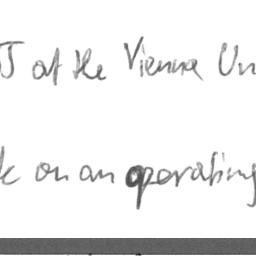 at the Vienna Un
on an operating